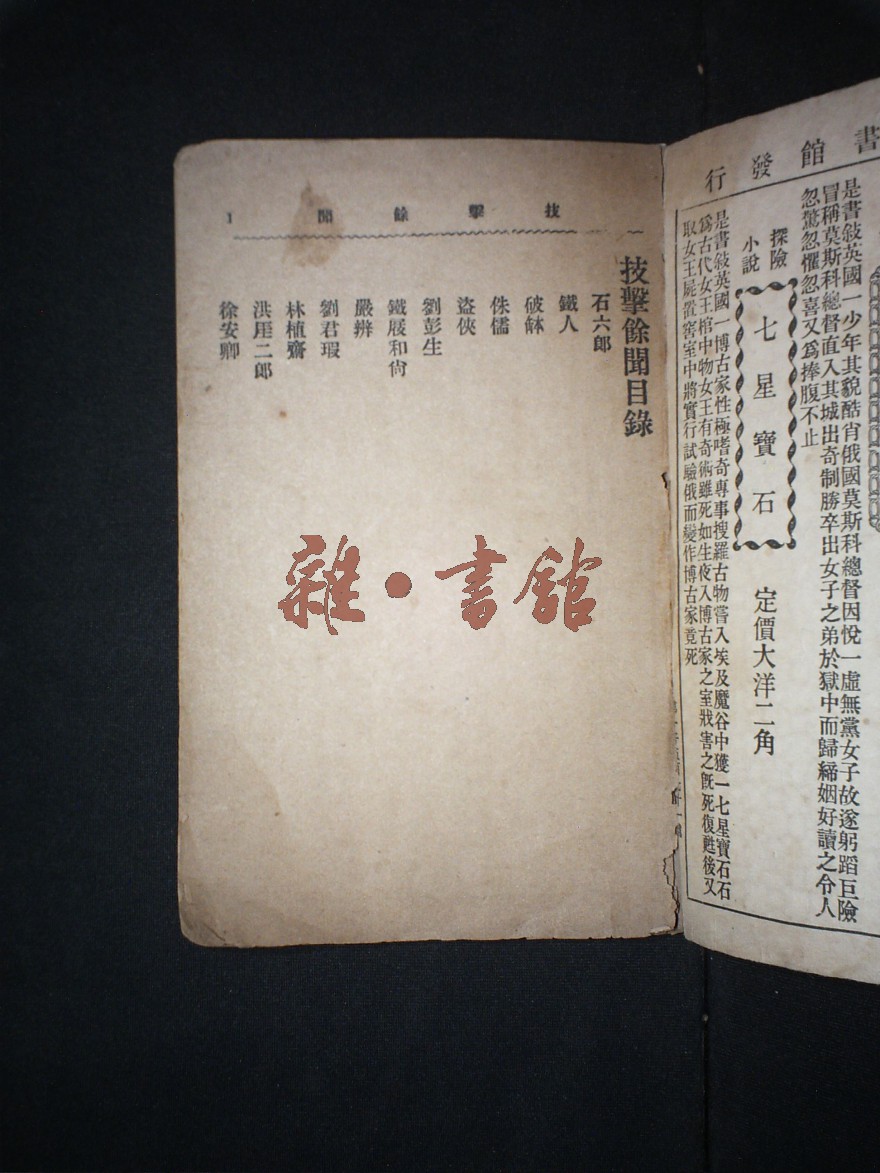 書館發行
是書敍英國一少年其貌酷肖俄國莫斯科總督因悅一虛無黨女子故遂躬蹈巨險
冒稱莫斯科總督直入其城出奇制勝卒出女子之弟於獄中而歸締姻好讀之令人
忽驚忽懼忽喜又爲捧腹不止
探險
小說
七星寶石
定價大洋二角
是書敍英國一博古家性極嗜奇專事搜羅古物嘗入埃及魔谷中獲一七星寶石石
爲古代女王棺中物女王有奇術雖死如生夜入博古家之室戕害之旣死復甦後又
取女王屍置窖室中將實行試驗俄而變作博古家竟死
技擊餘聞
1
技擊餘聞目錄
石六郎
鐵人
破缽
侏儒
盜俠
劉彭生
鐵屐和尙
嚴辨
劉君瑕
林植齋
洪厓二郎
徐安卿
雜·書館